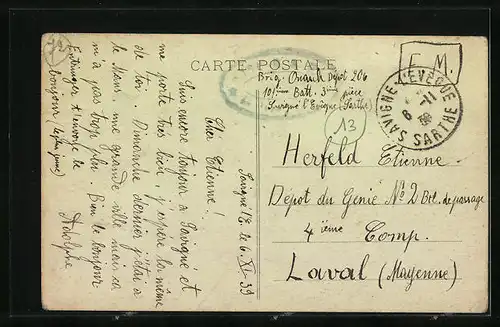 CARTE POSTALE
F. M.
Brig. Dépôt 206
101ème Batt. 3ème pièce
Savigné l'Evêque (Sarthe)
13
SAVIGNÉ L'EVEQUE
8 -11
39
SARTHE
Herfeld Etienne
Dépot du Génie No 2 Bat. de passage
4ième Comp.
Laval (Mayenne)
Savigné l'E. le 6. XI. 39
Cher Etienne!
Suis encore toujours à Savigné et
me porte très bien, j'espère la même
de toi. Dimanche dernier j'étais à
le Mans, une grande ville mais ça
m'a pas trop plu. Bien le bonjour
Adolphe
Entringer t'envoie le
bonjour également